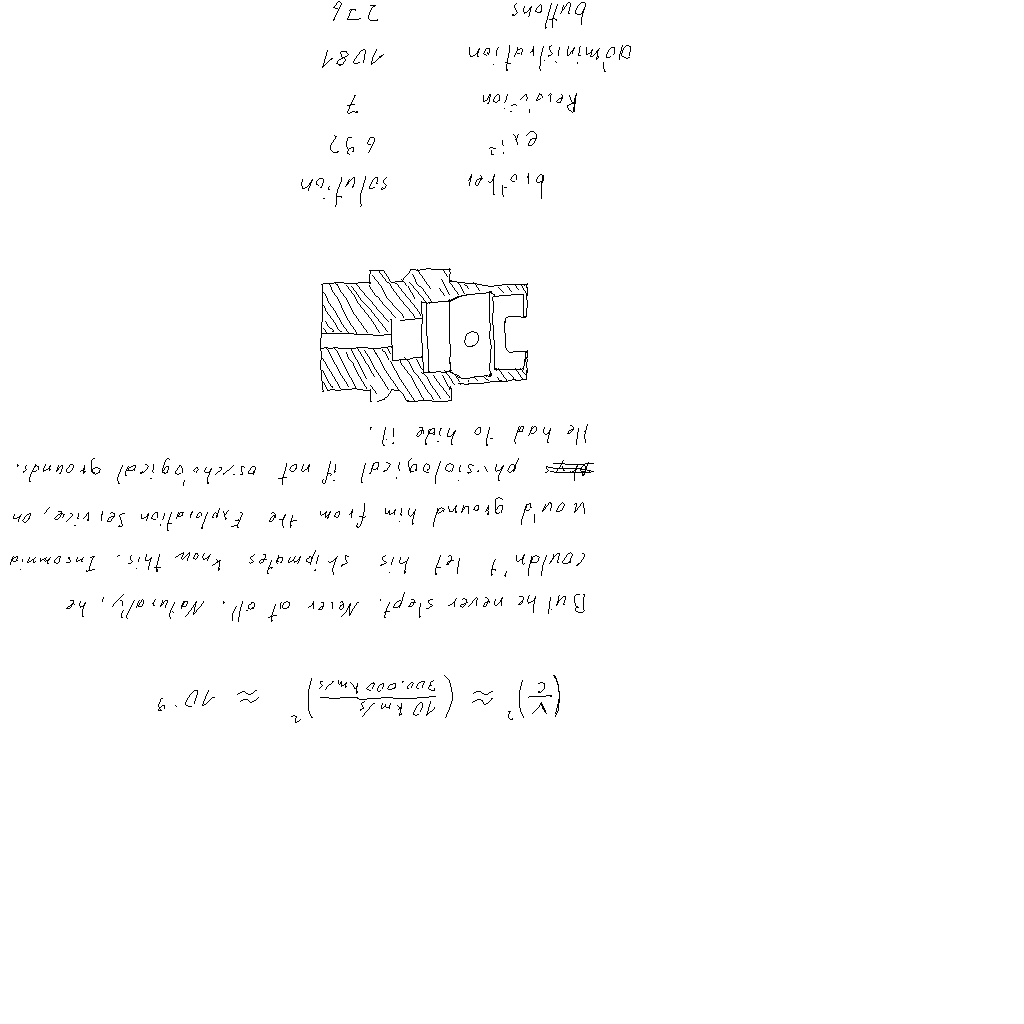 (v/c)² ≈ (10 km/s / 300.000 km/s)² ≈ 10⁻⁹
But he never slept. Never at all. Naturally, he
couldn't let his shipmates know this. Insomnia
would ground him from the Exploration Service, on
physiological if not psychological grounds.
He had to hide it.
brother solution
exit 692
7
administration 1081
buttons 276